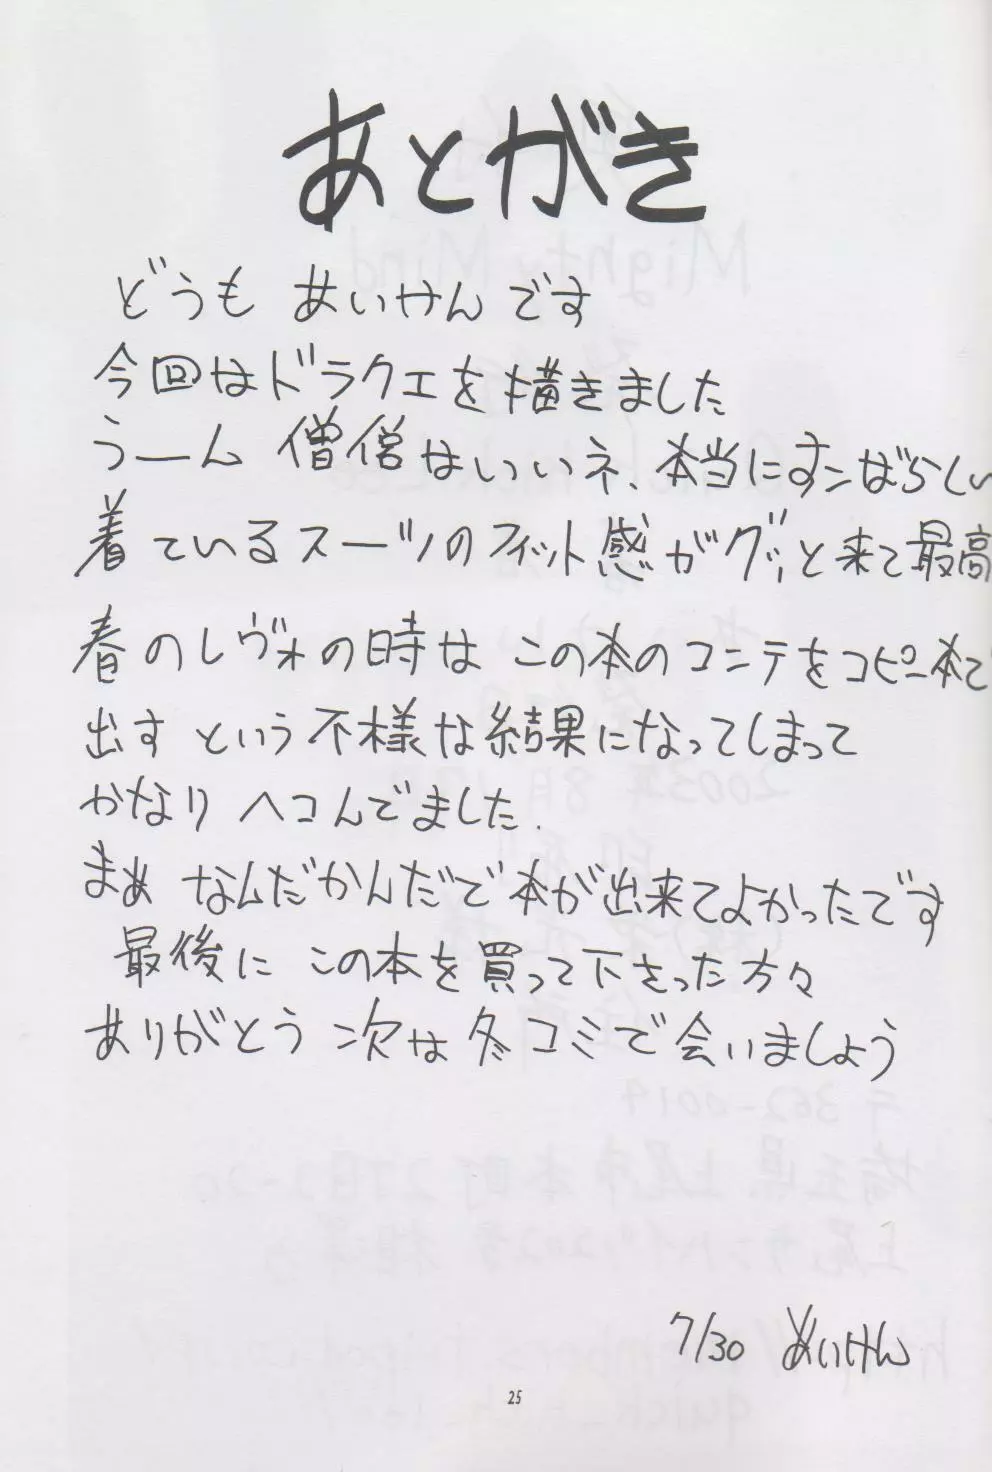 あとがき
どうも あいけんです
今回はドラクエを描きました
うーん 僧侶はいいネ、本当にすンばらしい
着ているスーツのフィット感がグッと来て最高
春のレヴォの時は この本のコンテをコピー本で
出すという不様な結果になってしまって
かなりヘコんでました.
まぁ なんだかんだで本が出来てよかったです
最後に この本を買って下さった方々
ありがとう 次は冬コミで会いましょう
7/30 あいけん
25